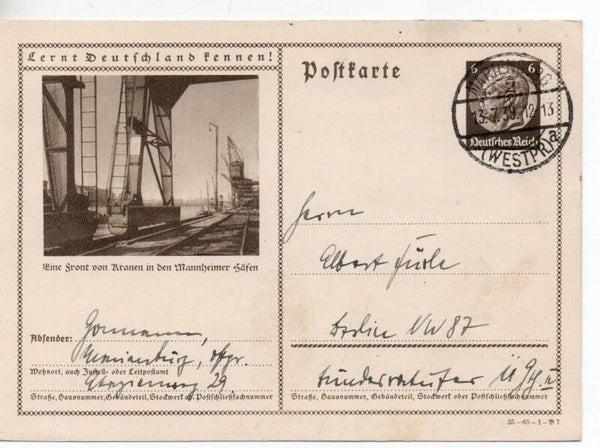 Lernt Deutschland kennen!
Postkarte
6 6
MARIENBURG
13.7.39. 12-13
(WESTPR) a
Deutsches Reich
Eine Front von Kranen in den Mannheimer Häfen
Herrn
Albert
Berlin NW 87
Absender:
Marienburg,
29
Wohnort, auch Zustell- oder Leitpostamt
Straße, Hausnummer, Gebäudeteil, Stockwerk od. Postschließfachnummer
Straße, Hausnummer, Gebäudeteil, Stockwerk oder Postschließfachnummer
35-65-1-B7